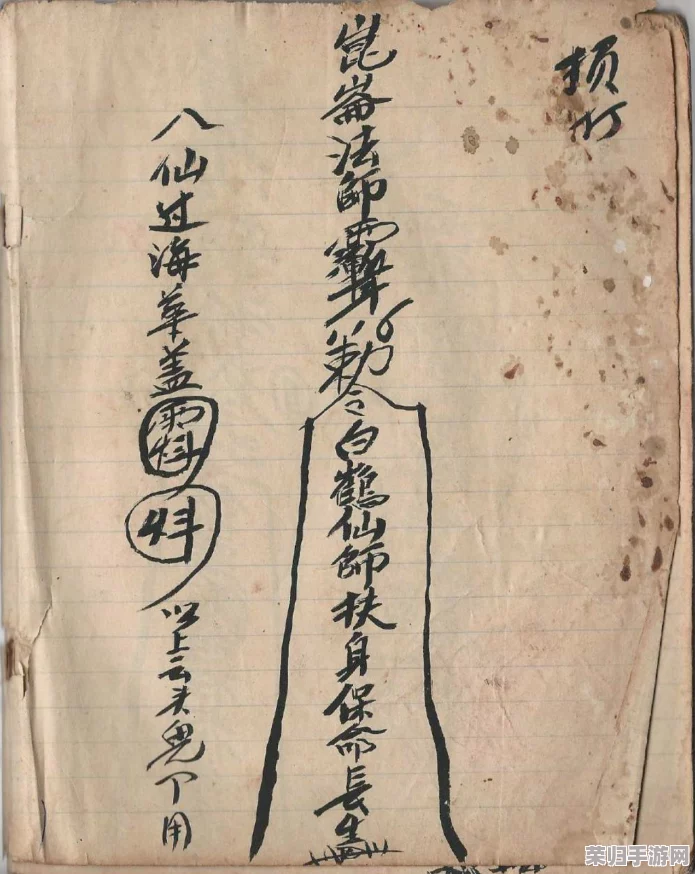 崑崙法師勅令白鶴仙師扶身保命長生
八仙过海華盖以上云头下用
荣归手游网